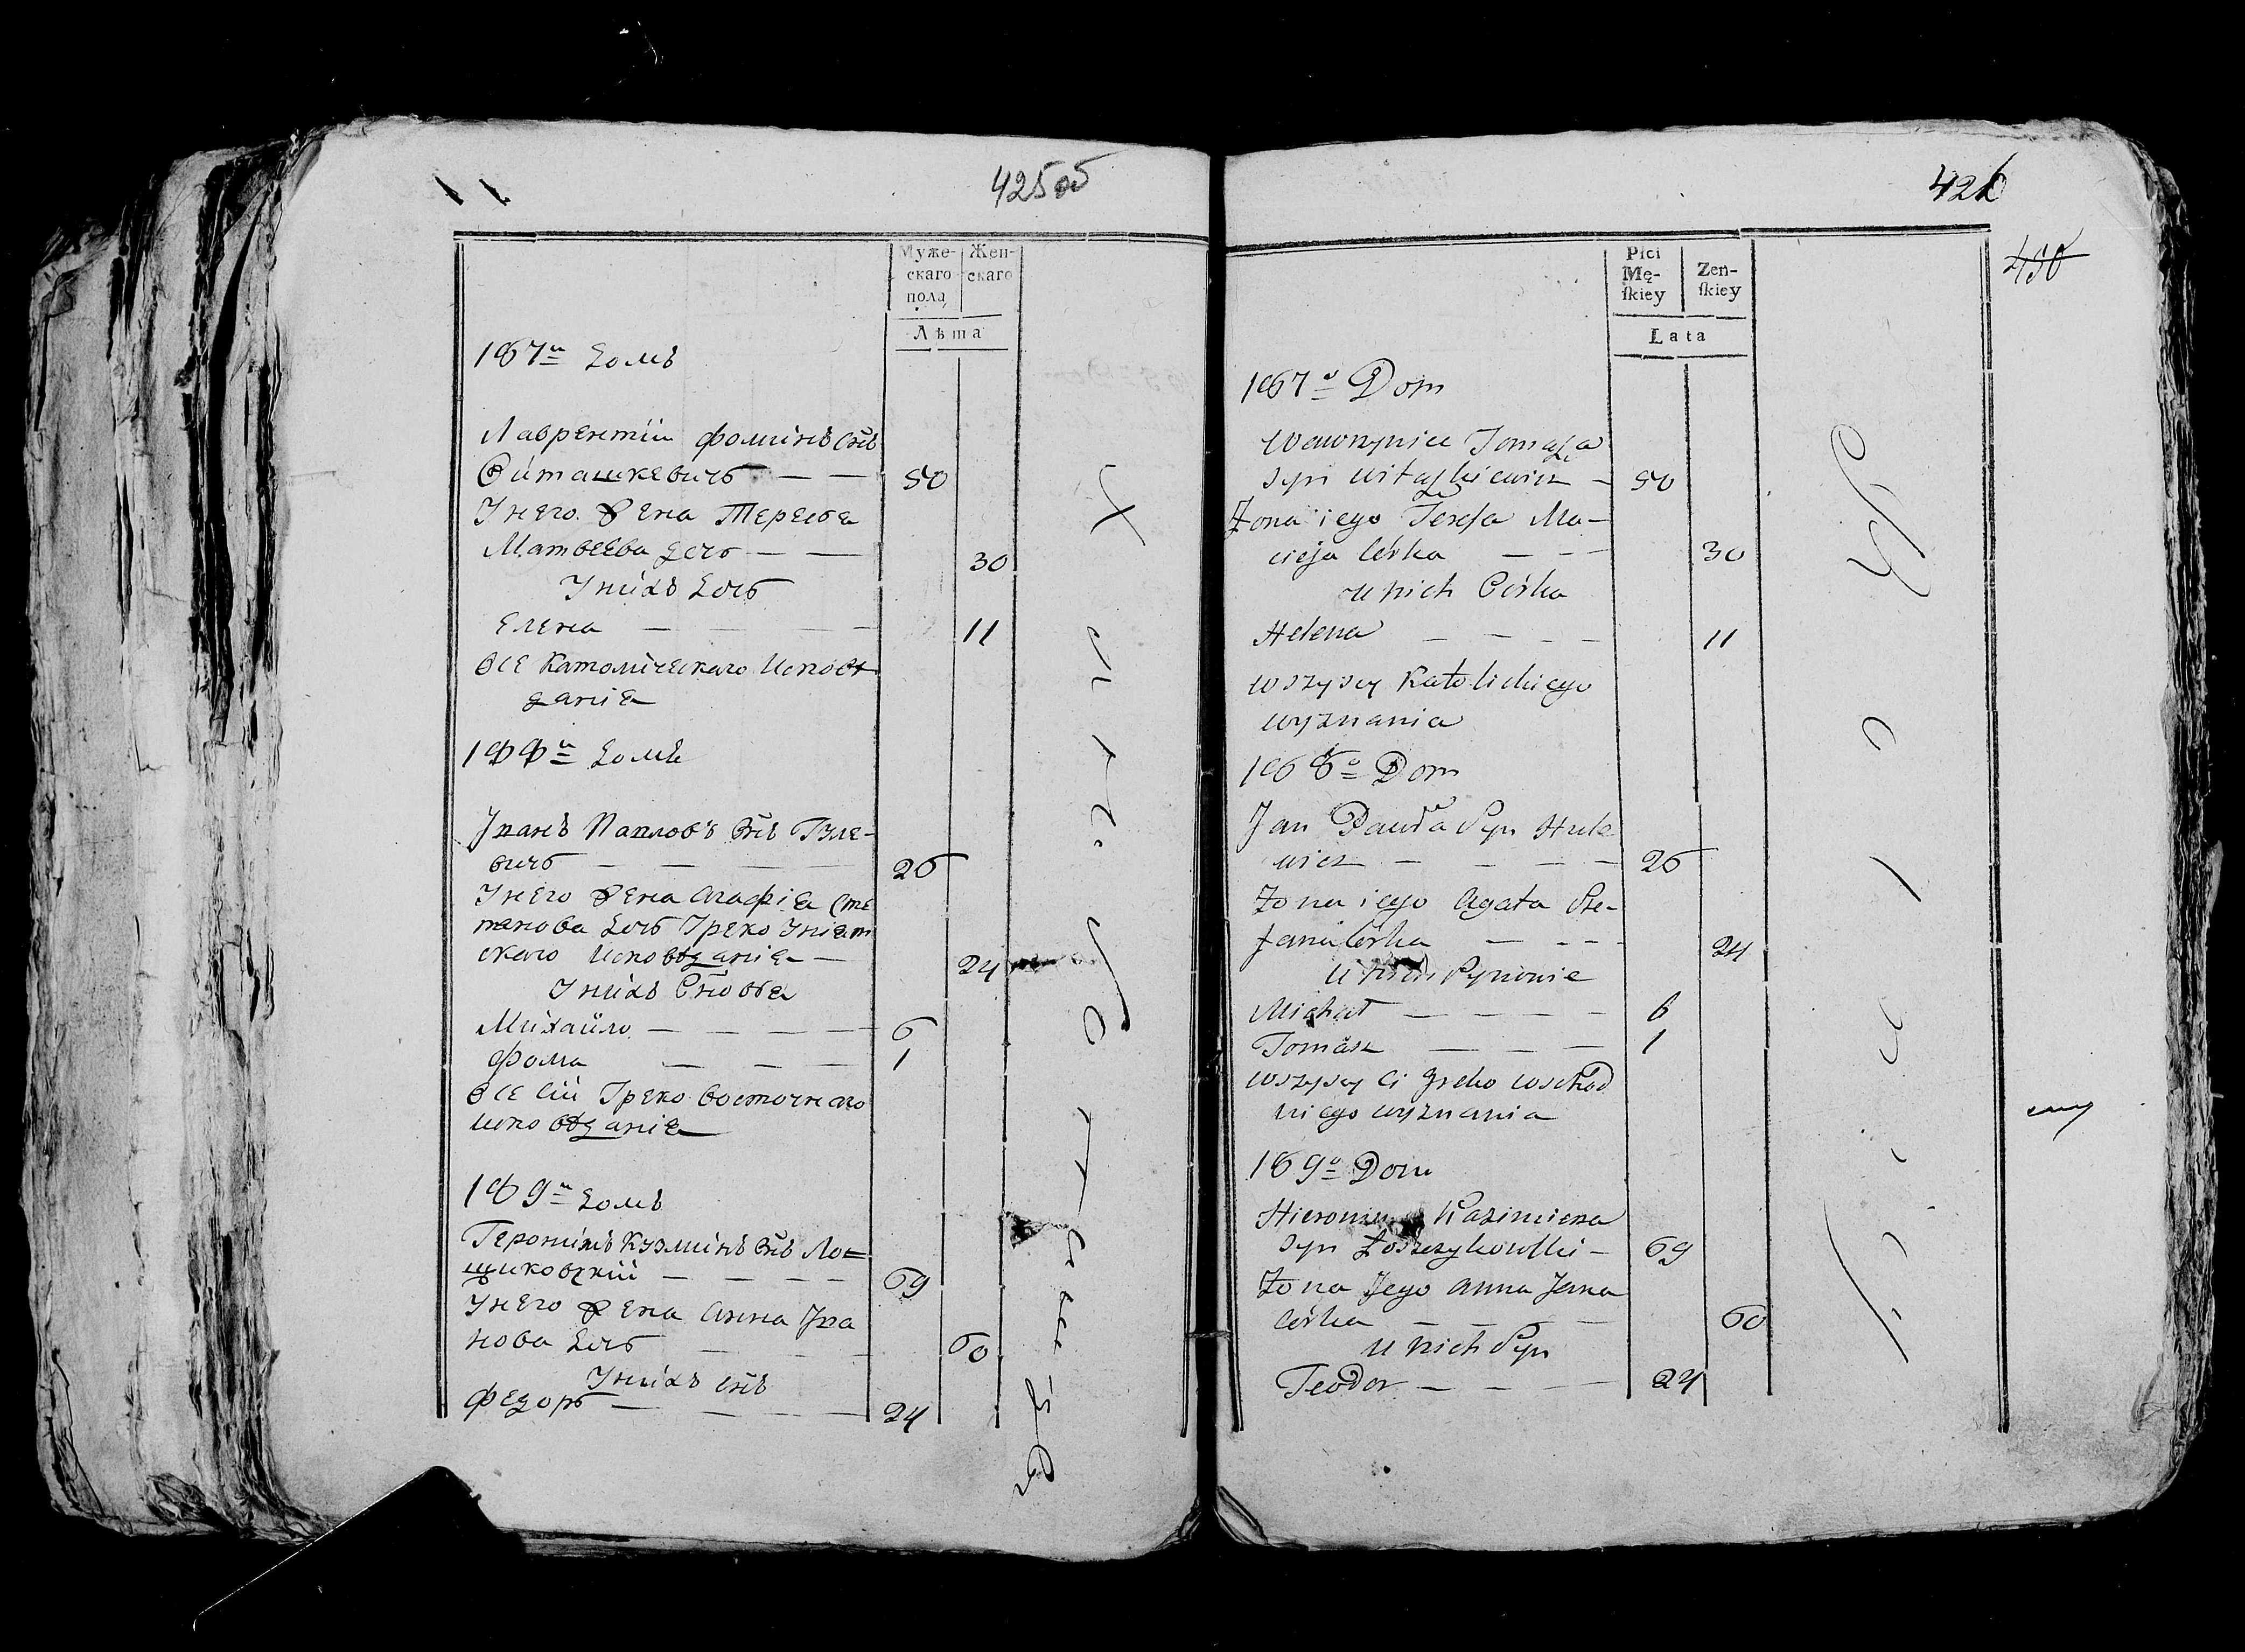 425 об
Муже-
скаго
пола
Жен-
скаго
Лѣта
187й домъ
Лаврентій Фоминъ снъ
Виташкевичъ — — 50
У него жена Тереса
Матвеева дочь — — 30
У нихъ дочь
Елена — — — 11
все Католическаго Исповѣ
данія
188й домъ
Иванъ Павловъ снъ Гуле-
вичъ — — — — 26
У него жена Агафія Сте
панова дочь Греко Уніят
скаго Исповѣданія — 24
У нихъ Сновья
Михайло — — — — 6
Фома — — — — 1
Все сіи Греко восточнаго
исповѣданія
189й домъ
Геронимъ Кузминъ снъ Ло
щиковскій — — — — 69
У него жена Анна Ива
нова дочь — — 60
У нихъ снъ
Федоръ — — — — 24
426
Płci
Mę-
ſkiey
Zeń-
ſkiey
Lata
187o Dom
Wawrzyniec Tomasza
syn Witaszkiewicz — 50
Żona iego Teresa Ma-
cieja Córka — — — 30
u nich Córka
Helena — — — — 11
wszyscy Katolickiego
wyznania
188o Dom
Jan Pawła Syn Hule
wicz — — — — 26
Żona iego Agata Ste-
fana Córka — — — 24
u nich Synowie
Michał — — — — 6
Tomasz — — — 1
wszyscy Ci Greko wschod
niego wyznania
189o Dom
Hieronim Kazimierza
syn Łoszczykowski — 69
Żona Jego Anna Jana
Córka — — — 60
u nich Syn
Teodor — — — 24